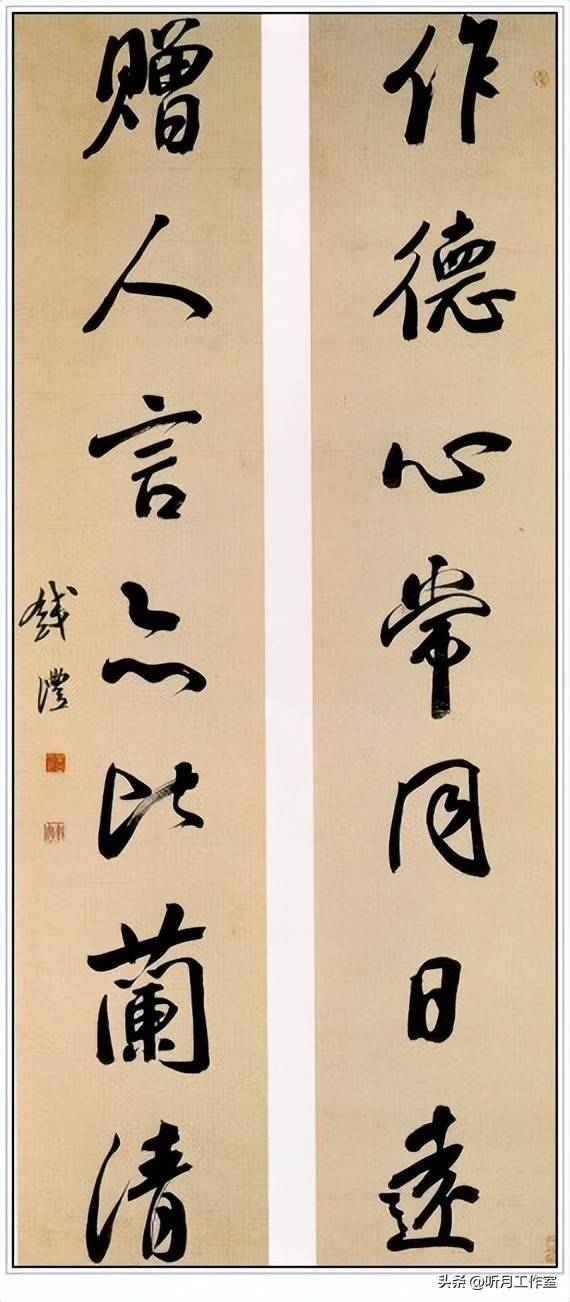 作德心常同日遠
贈人言亦比蘭清
錢灃
头条 @听月工作室